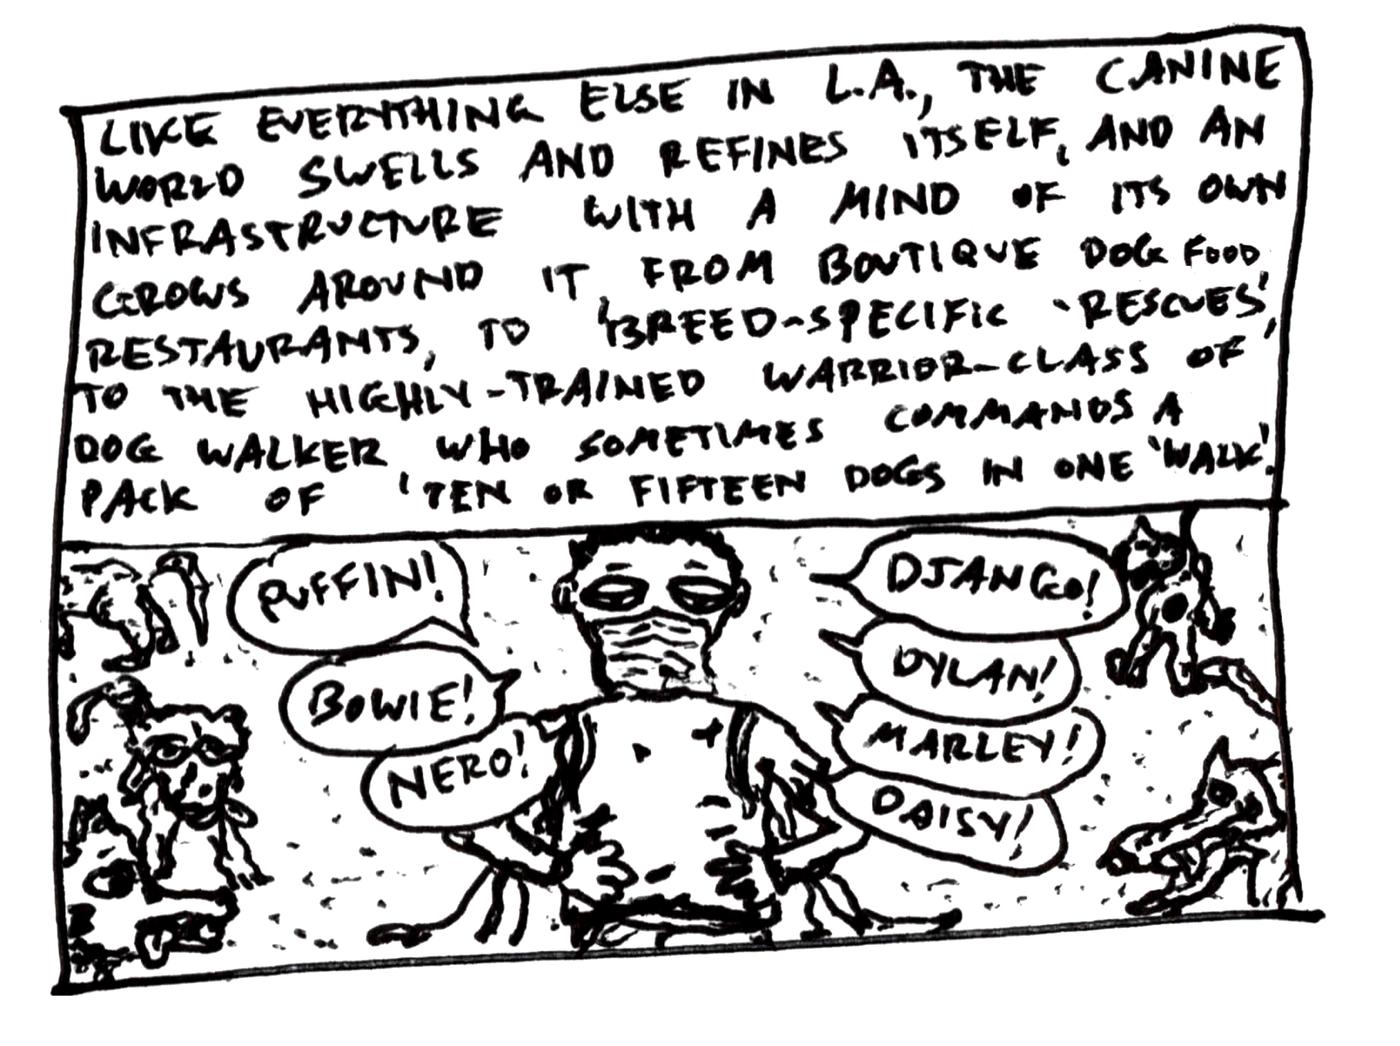 LIKE EVERYTHING ELSE IN L.A., THE CANINE
WORLD SWELLS AND REFINES ITSELF, AND AN
INFRASTRUCTURE WITH A MIND OF ITS OWN
GROWS AROUND IT, FROM BOUTIQUE DOG FOOD
RESTAURANTS, TO 'BREED-SPECIFIC 'RESCUES',
TO THE HIGHLY-TRAINED WARRIOR-CLASS OF
DOG WALKER WHO SOMETIMES COMMANDS A
PACK OF 'TEN OR FIFTEEN DOGS IN ONE 'WALK'.
PUFFIN!
BOWIE!
NERO!
DJANGO!
DYLAN!
MARLEY!
DAISY!